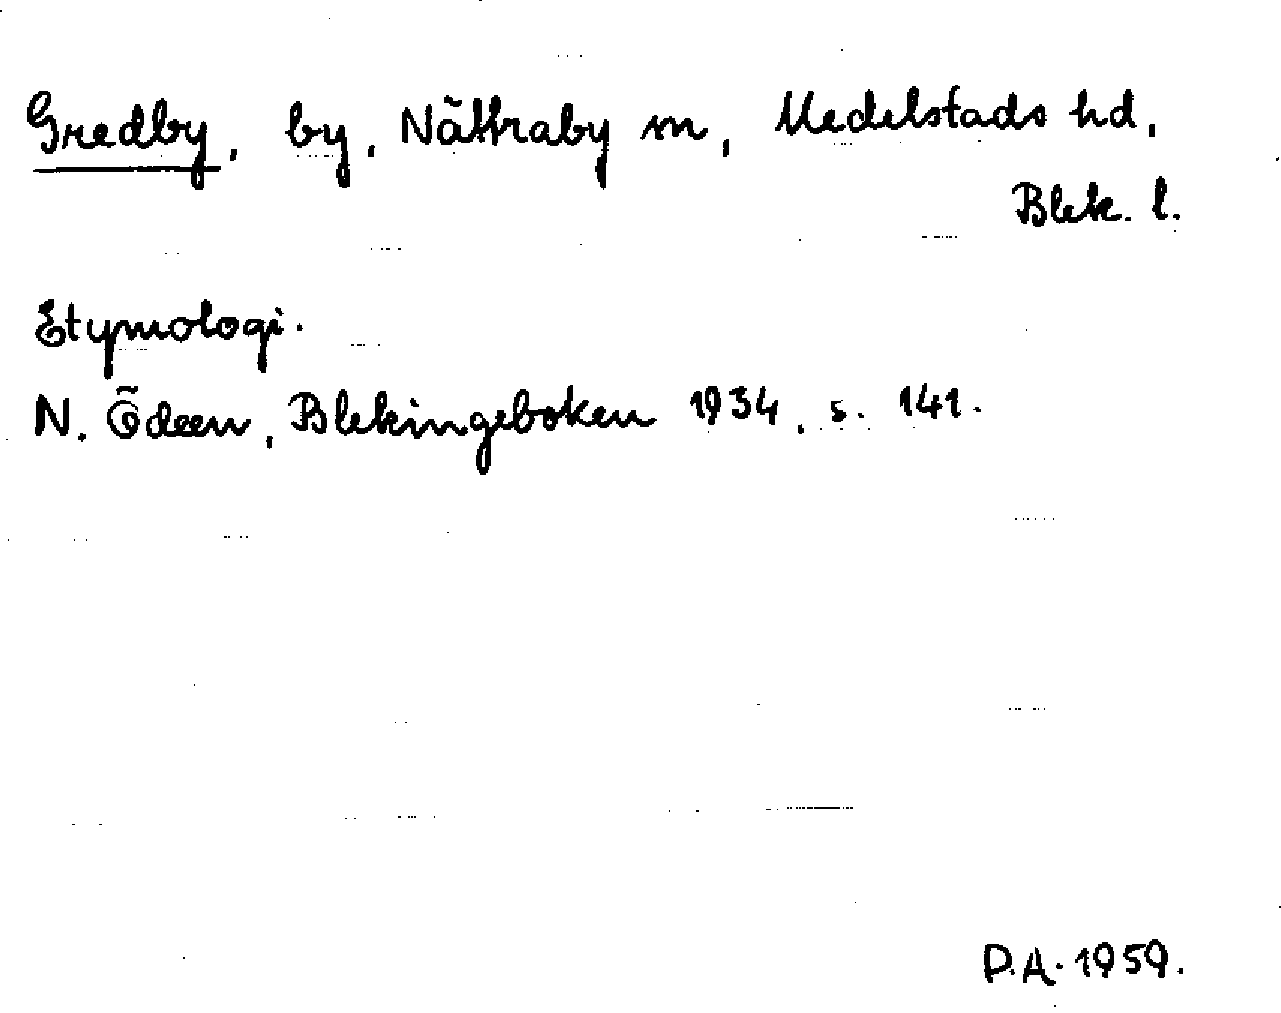 Gredby, by, Nättraby sn, Medelstads hd,
Blek. l.
Etymologi.
N. Ödeen, Blekingeboken 1934, s. 141.
D.A. 1959.